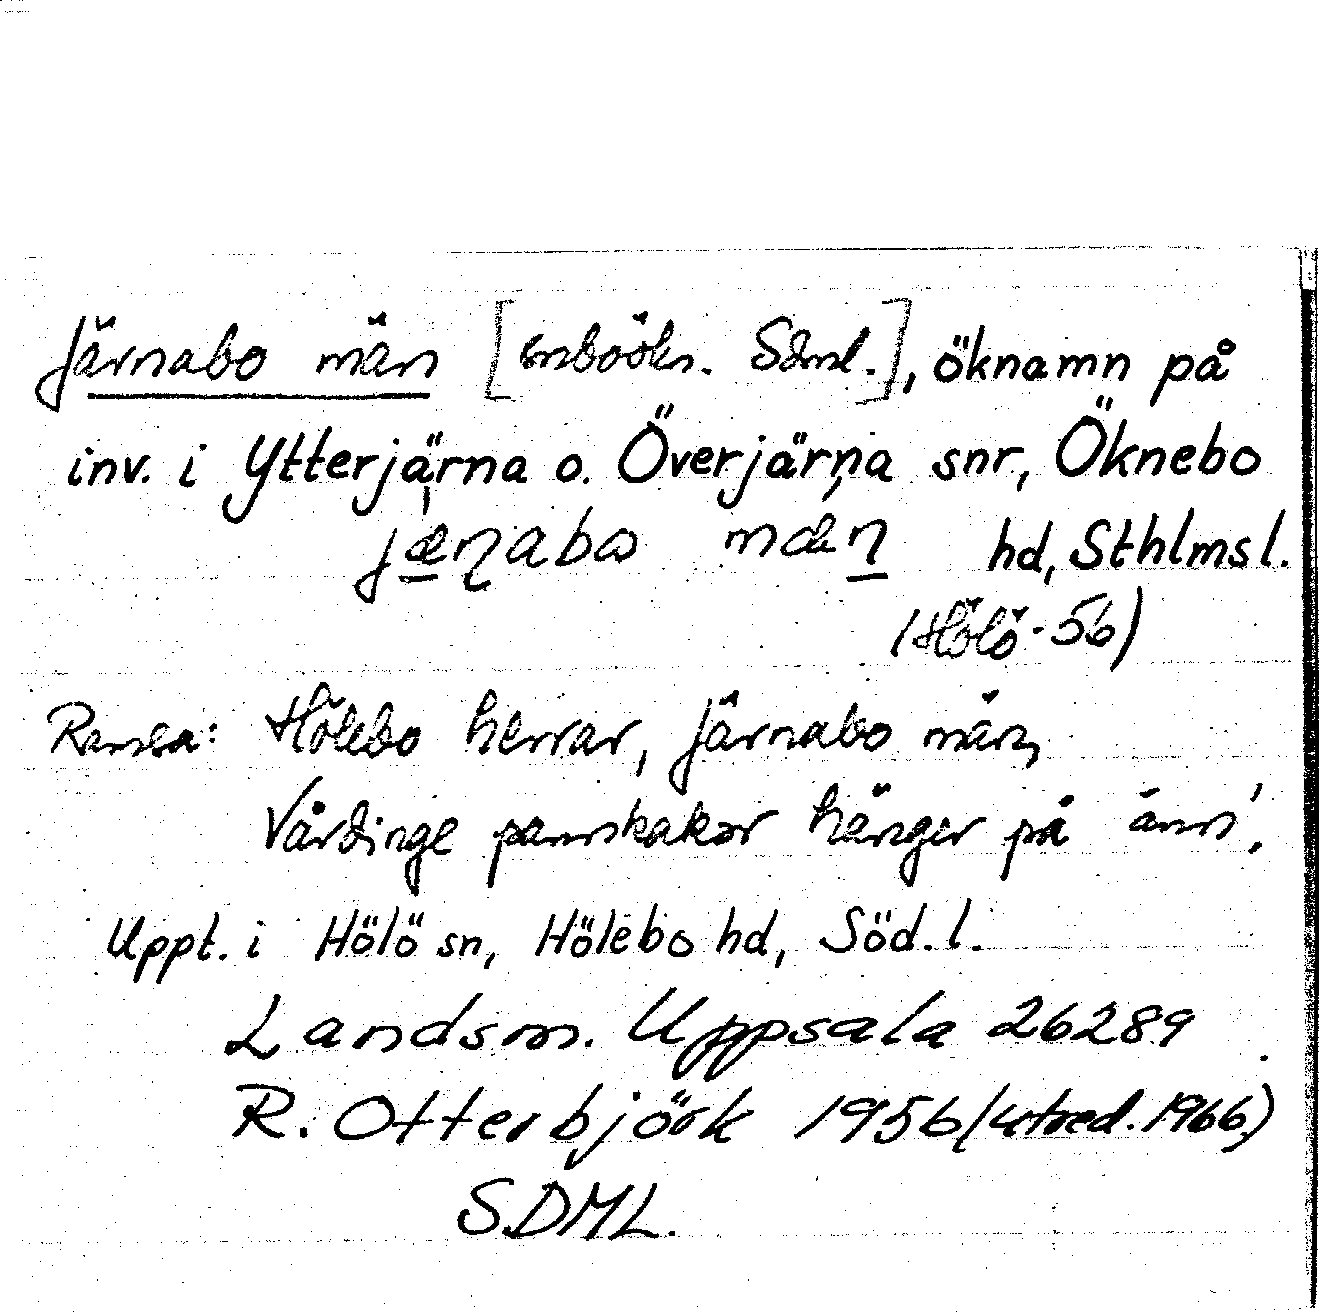 Järnabo män [snboökn. Sdml.], öknamn på
inv. i Ytterjärna o. Överjärna snr, Öknebo
jæ̠ɳabo mæn̠ hd, Sthlmsl.
(Hölö-56)
Ramsa: Hölebo herrar, Järnabo män,
Vårdinge pannskakor hänger på änn'.
Uppt. i Hölö sn, Hölebo hd, Söd. l.
Landsm. Uppsala 26289
R. Otterbjörk 1956 (utred. 1966)
SDML.